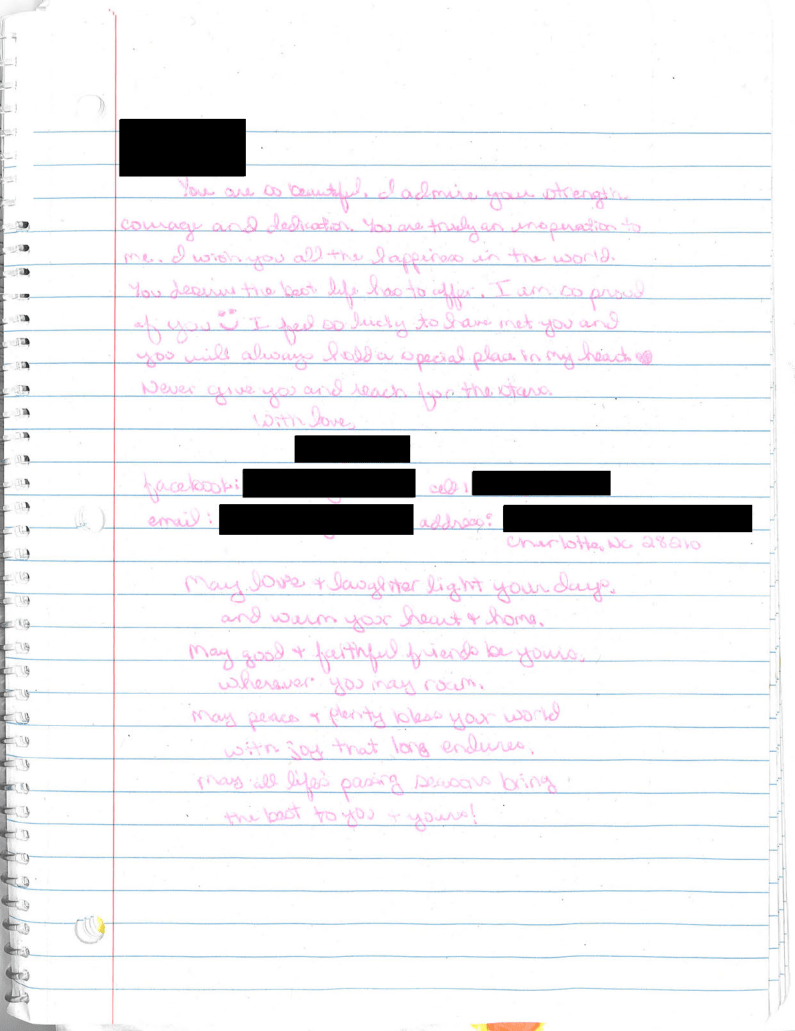 You are so beautiful. I admire your strength,
courage and dedication. You are truly an inspiration to
me. I wish you all the happiness in the world.
You deserve the best life has to offer. I am so proud
of you I feel so lucky to have met you and
you will always hold a special place in my heart
Never give you and reach for the stars.
With love,
facebook: cell:
email: address:
Charlotte, NC 28210
May love + laughter light your days,
and warm your heart + home.
May good + faithful friends be yours,
wherever you may roam.
May peace + plenty bless your world
with joy that long endures.
May all life's passing seasons bring
the best to you + yours!